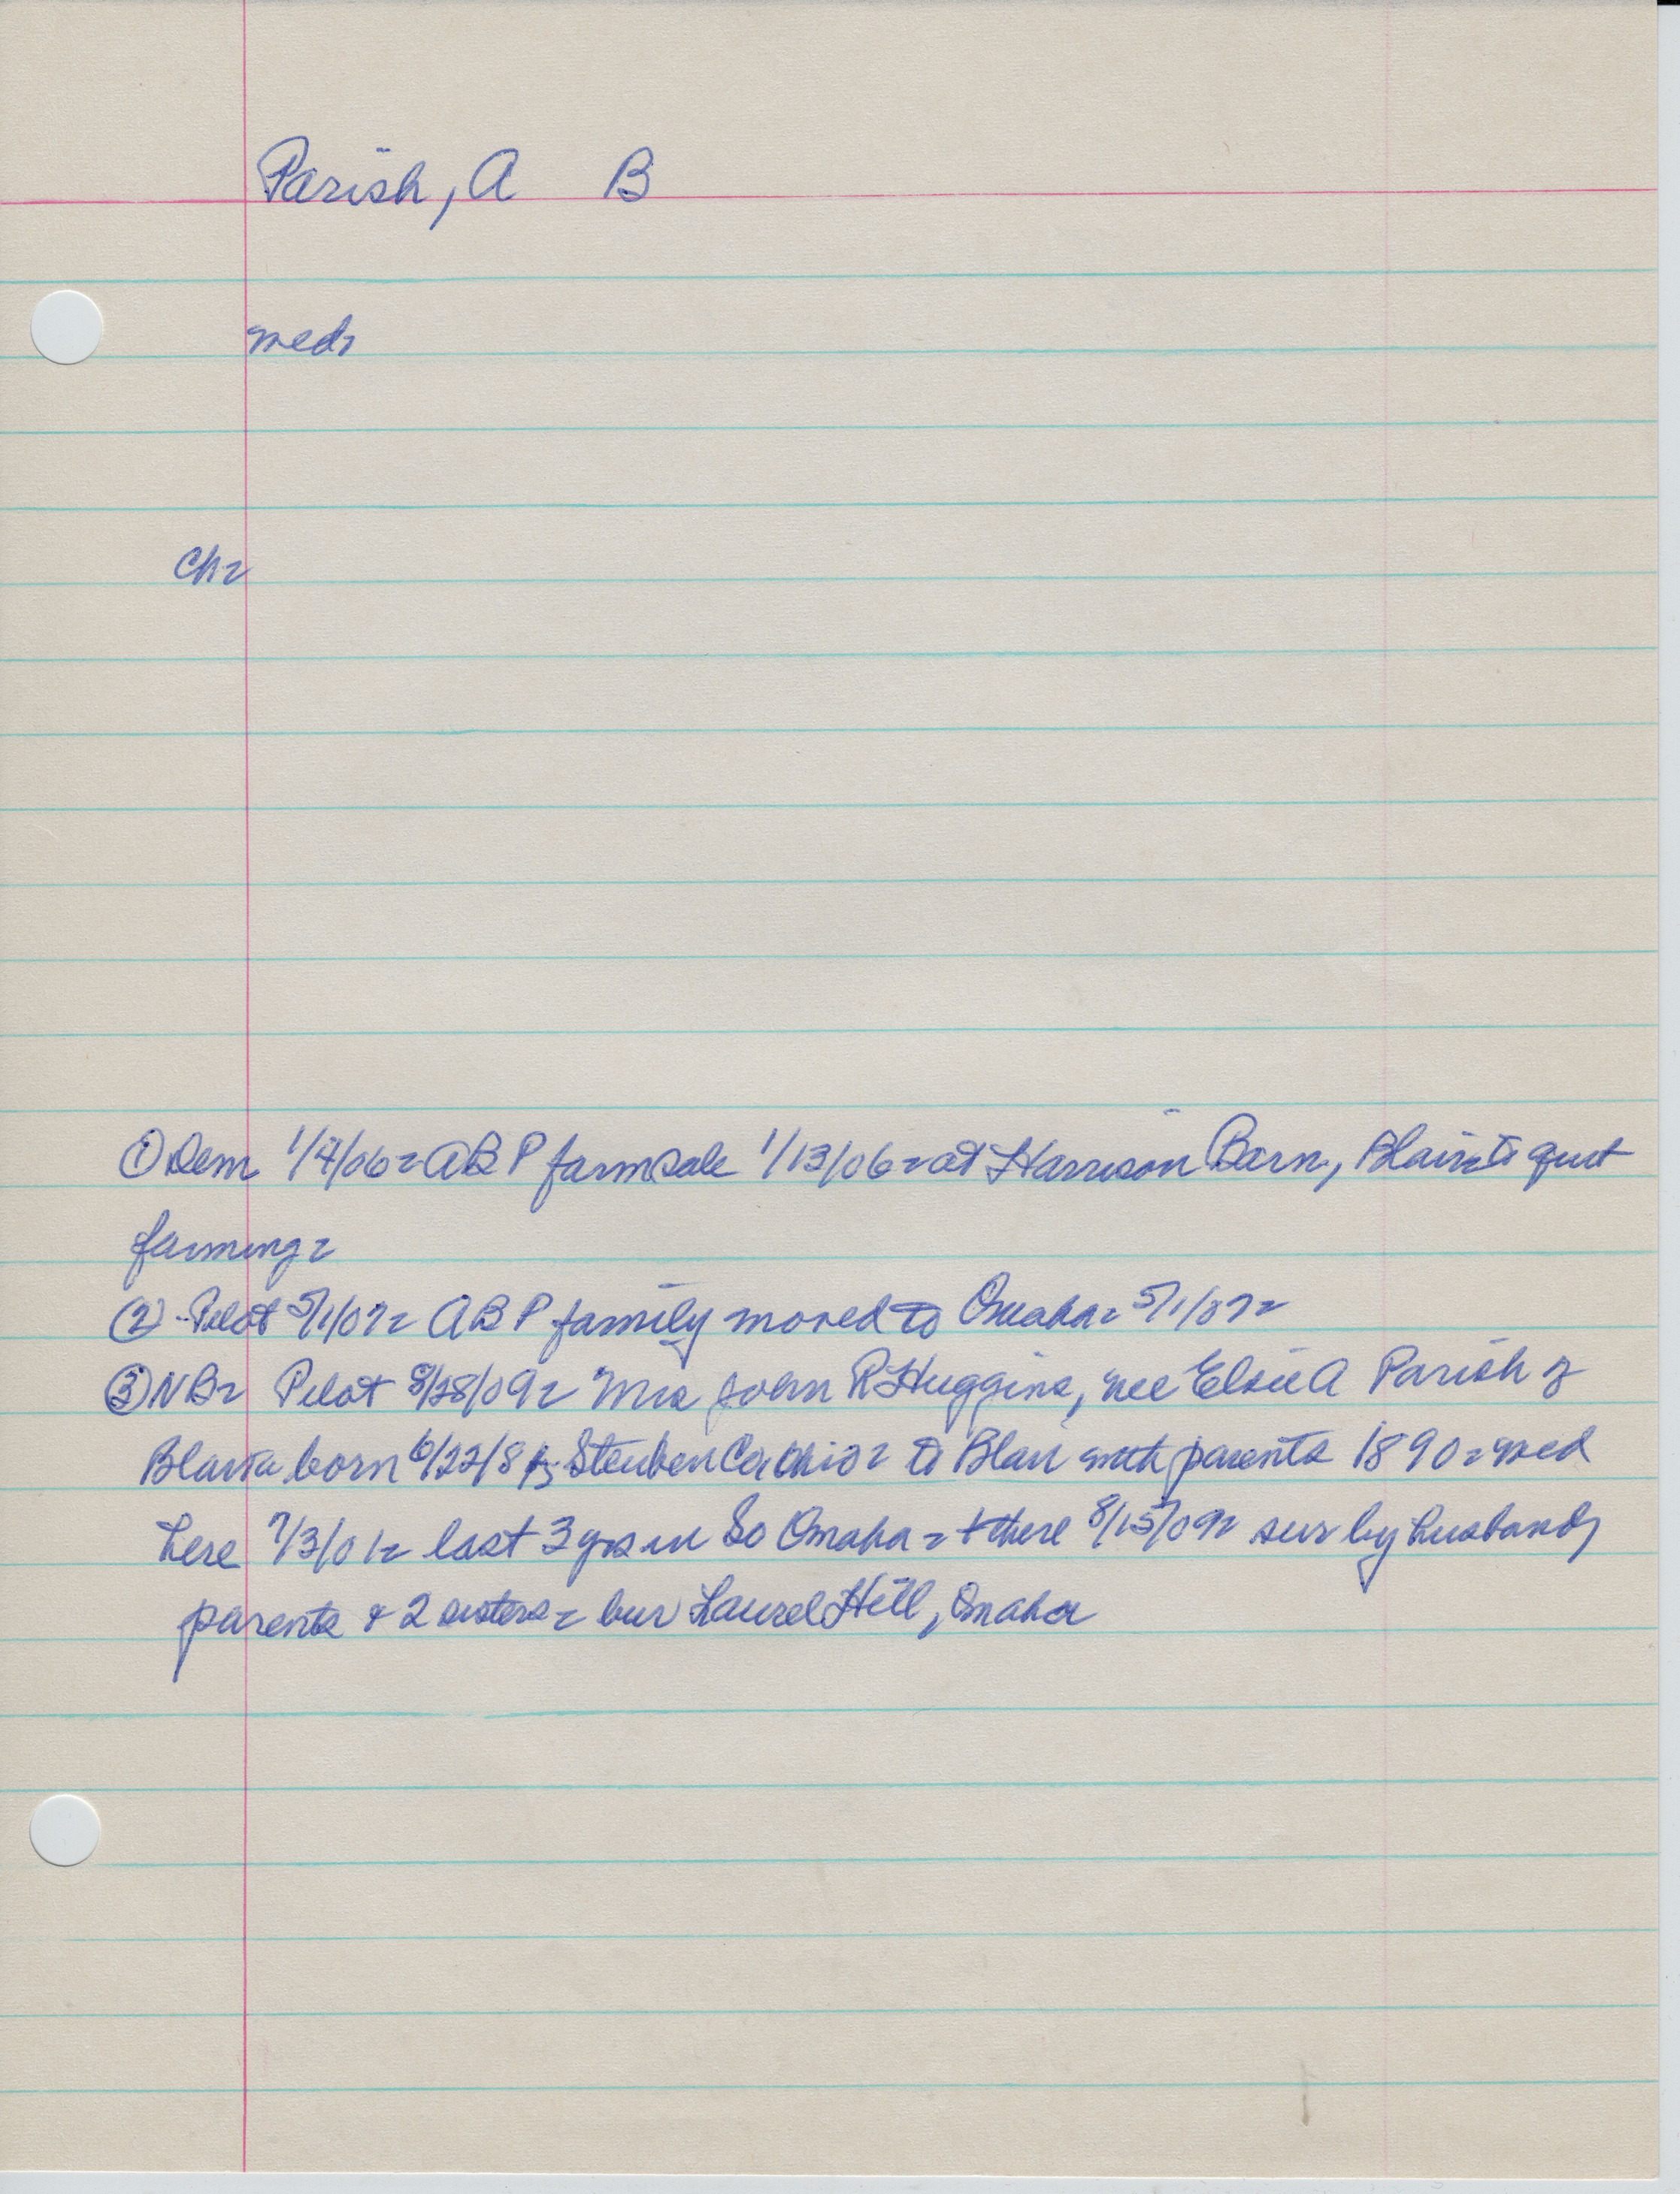 Parish, A B
med=
Ch=
① Dem 1/4/06= A B P farm sale 1/13/06= at Harrison Barn, Blair= to quit
farming=
(2) Pilot 5/1/07= A B P family moved to Omaha= 5/1/07=
③ NB= Pilot 8/28/09= Mrs John R Huggins, nee Elsie A Parish of
Blair= born 6/22/8 Steuben Co Ohio= to Blair with parents 1890= med
here 7/3/01= last 3 yrs in So Omaha= + there 8/15/09= sur by husband,
parents & 2 sisters= bur Laurel Hill, Omaha